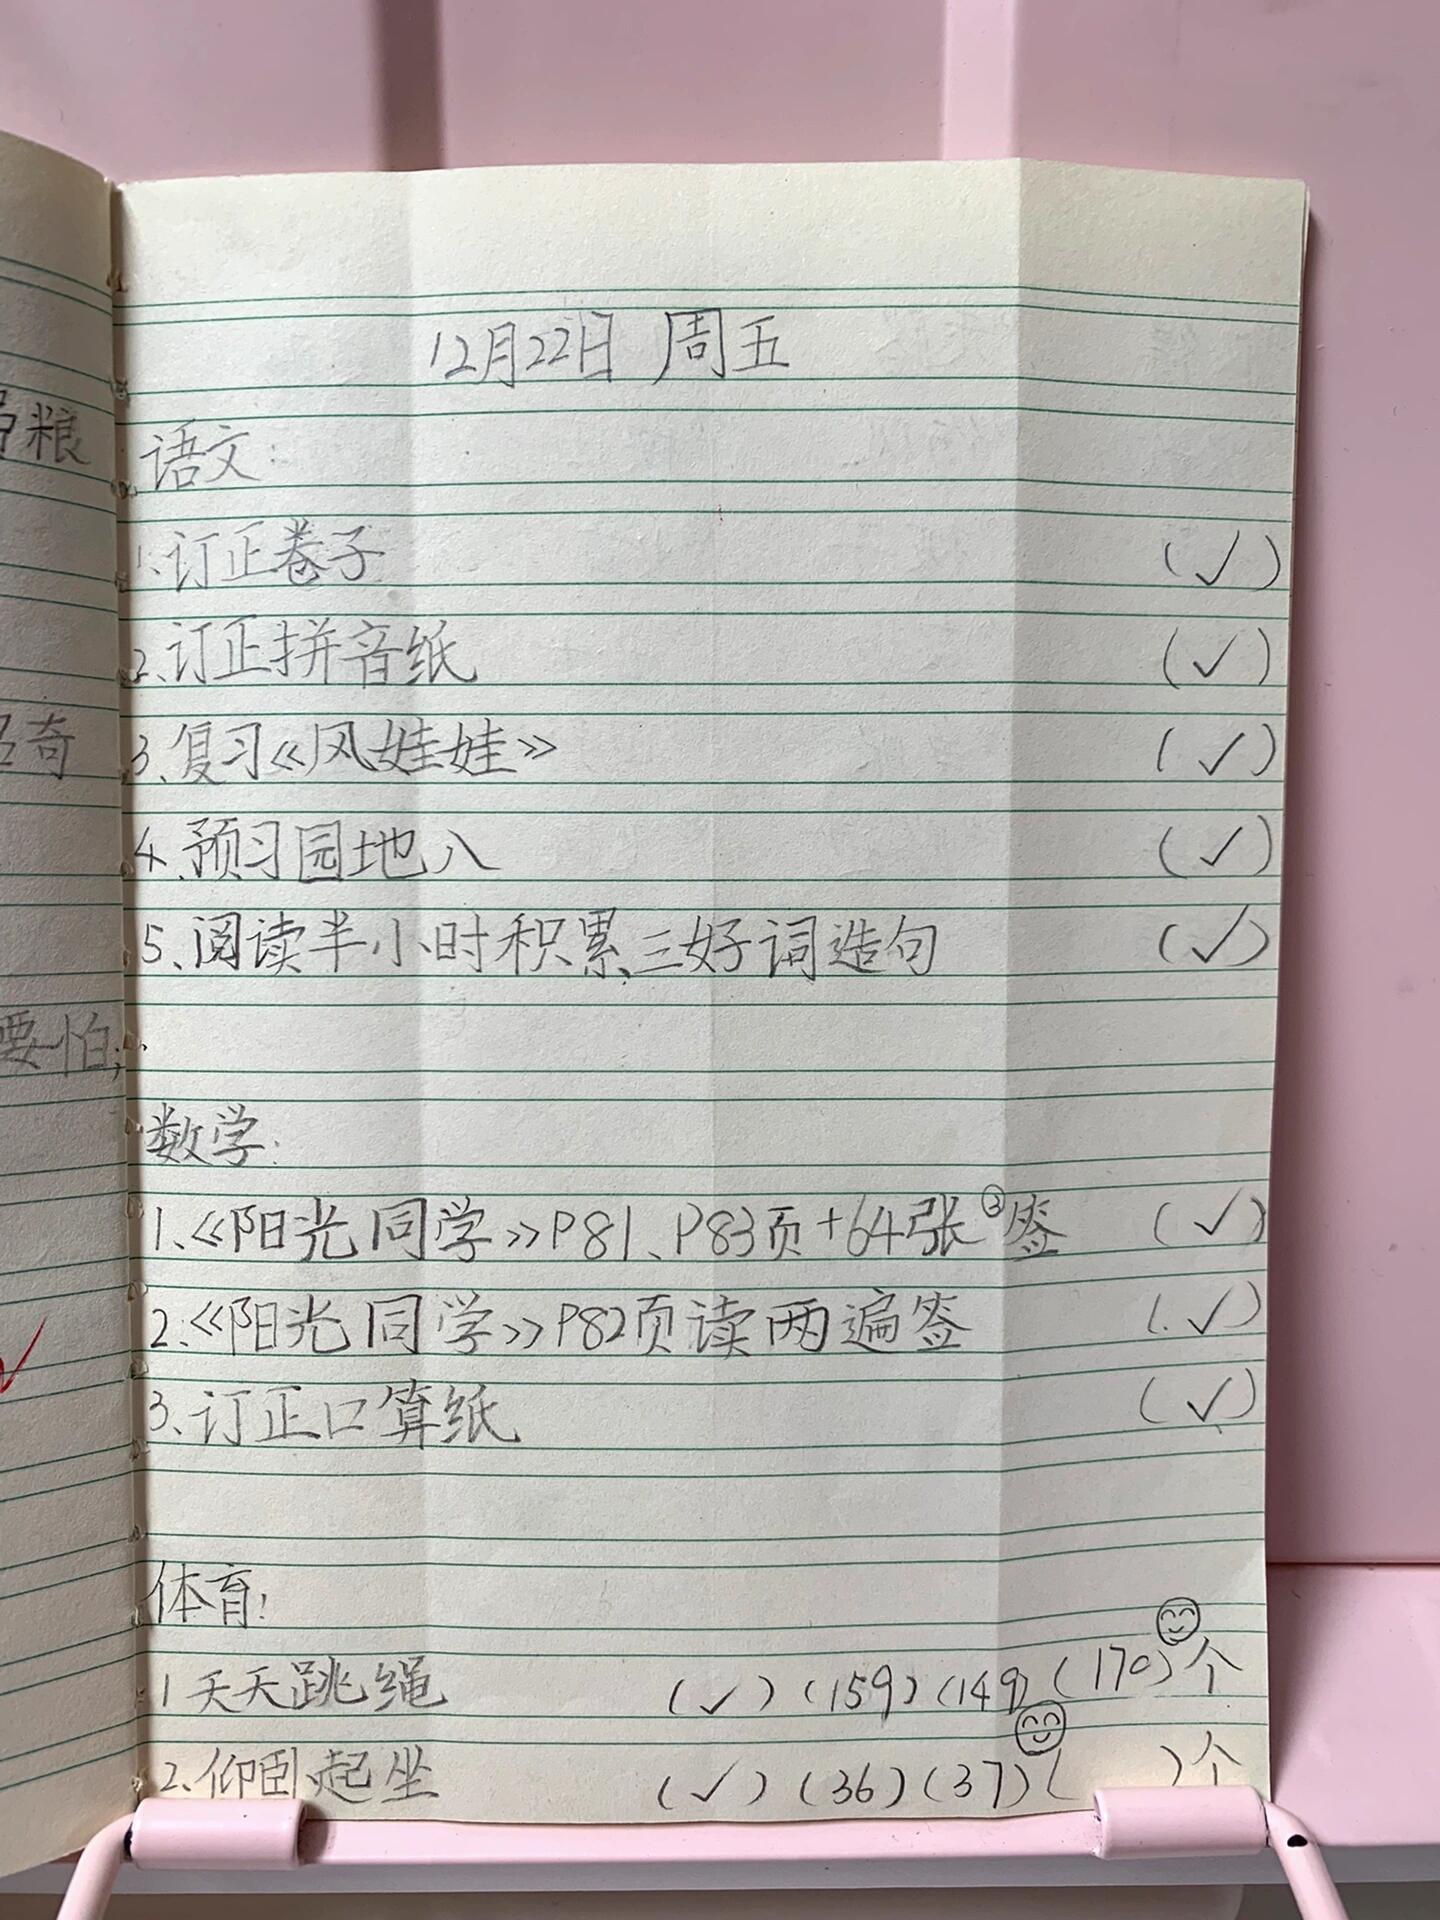 12月22日 周五
语文:
1.订正卷子 (✓)
2.订正拼音纸 (✓)
3.复习《风娃娃》 (✓)
4.预习园地八 (✓)
5、阅读半小时积累三好词造句 (✓)
数学:
1、《阳光同学》P81、P83页+64张②签 (✓)
2.《阳光同学》P82页读两遍签 (✓)
3、订正口算纸 (✓)
体育:
1天天跳绳 (✓)(159)(149)(170)个
2、仰卧起坐 (✓)(36)(37)( )个
粮
奇
要怕;